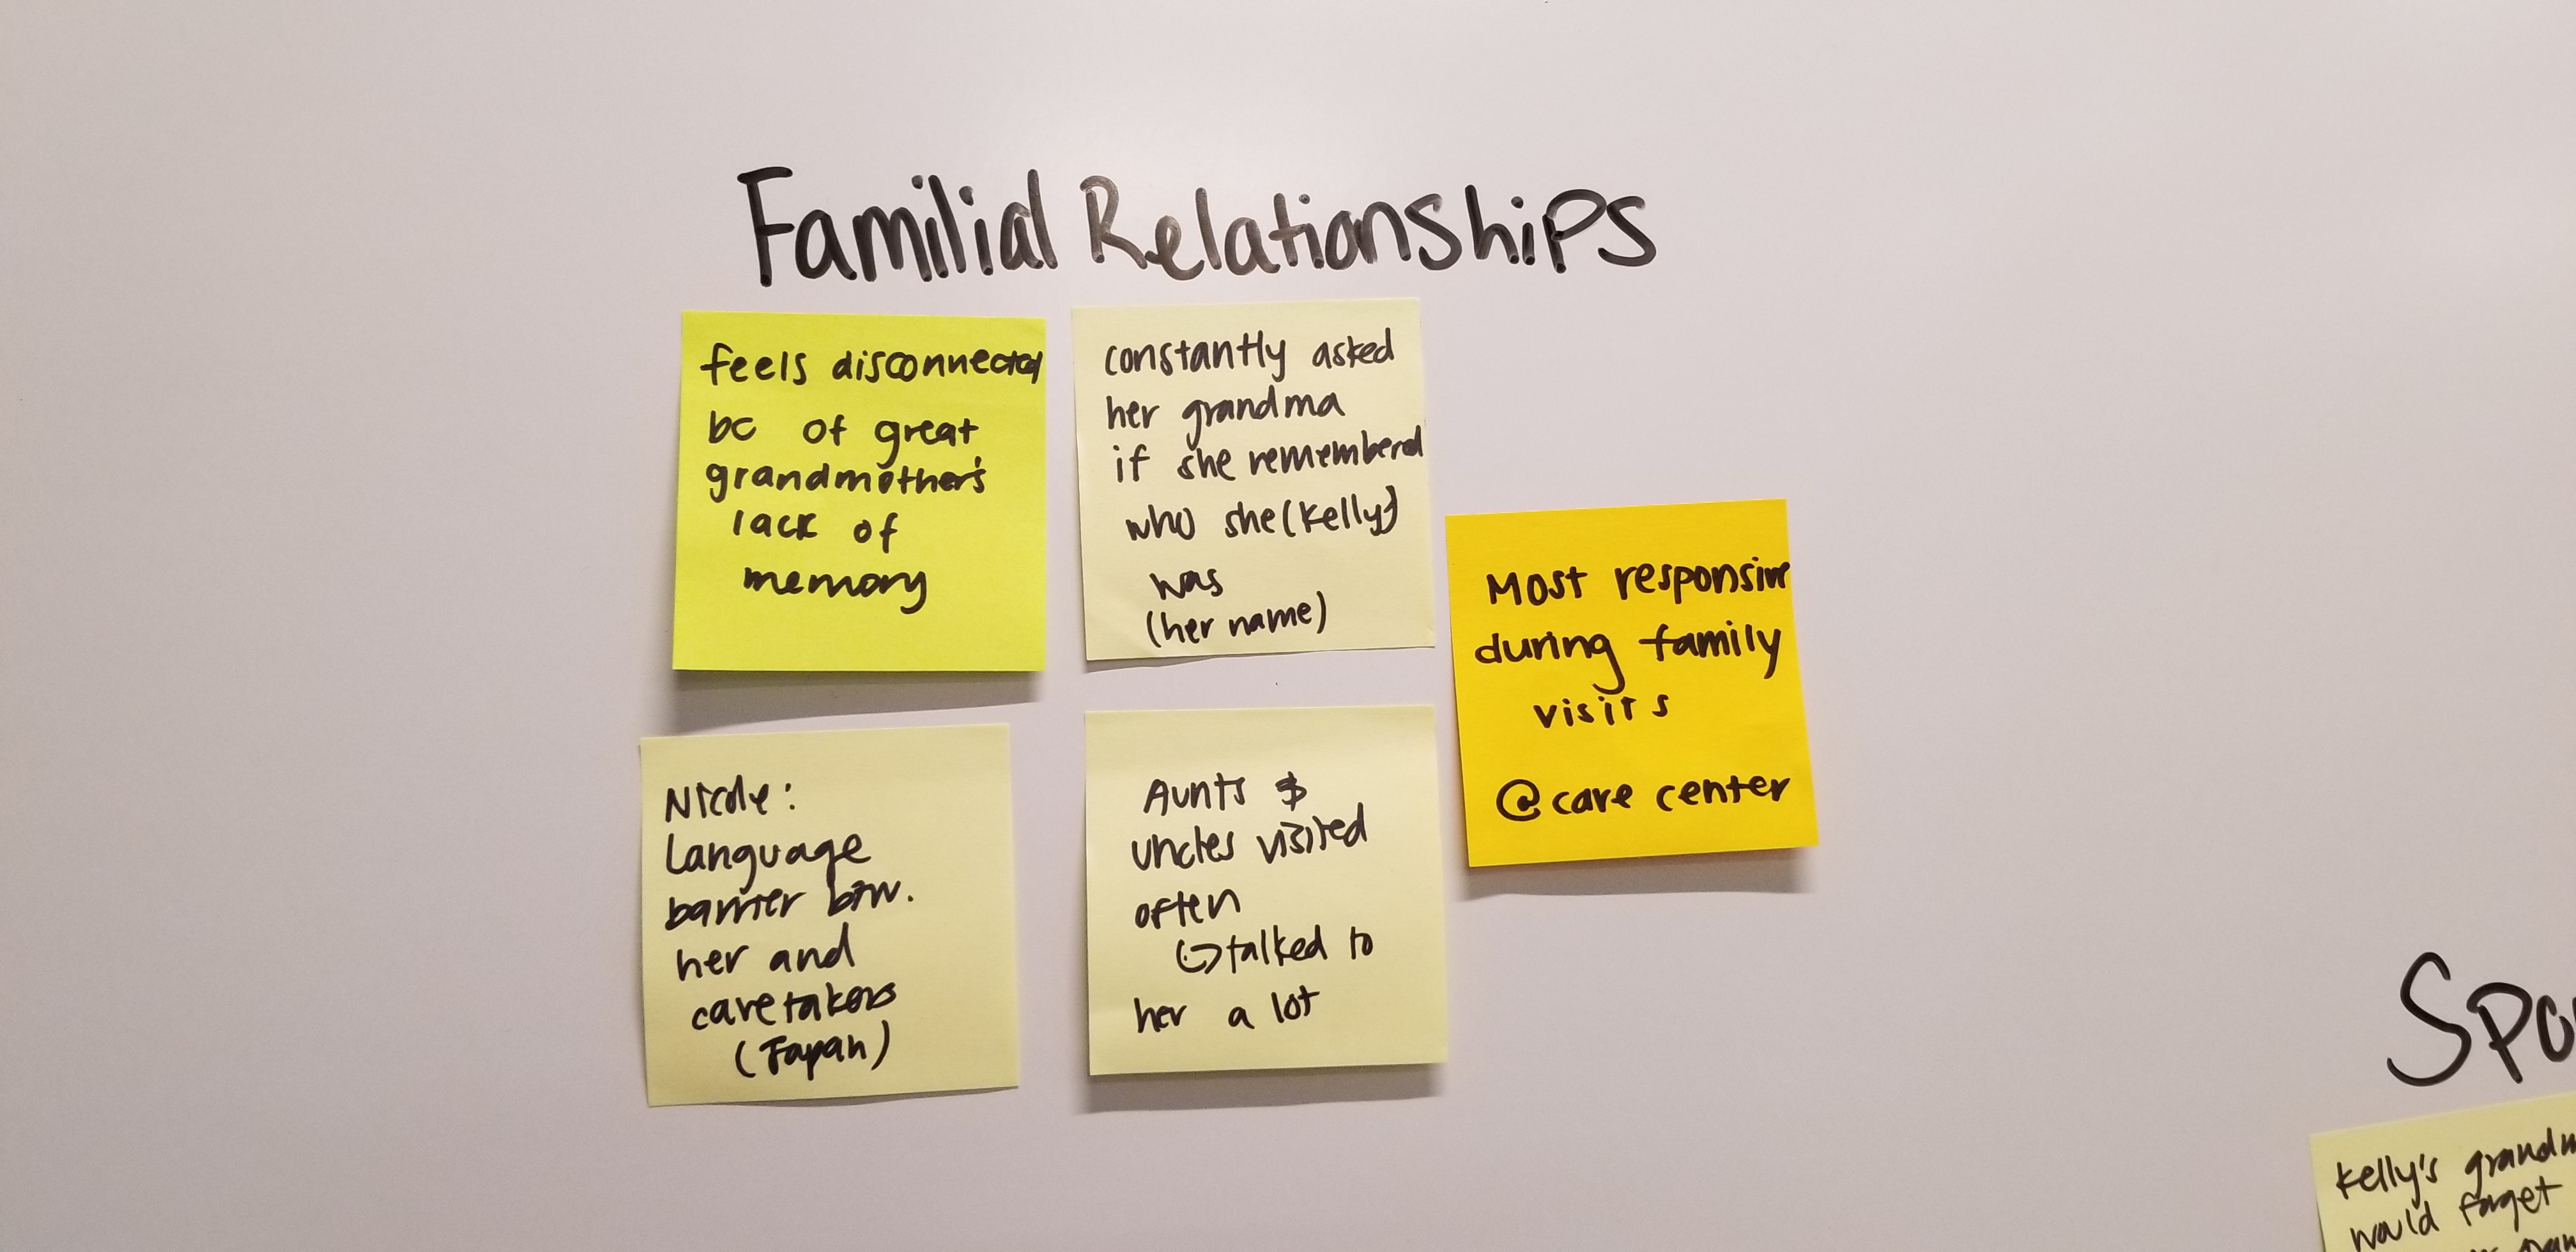 Familial Relationships
feels disconnected
bc of great
grandmother's
lack of
memory
constantly asked
her grandma
if she remembered
who she (kelly)
was
(her name)
Most responsive
during family
visits
@ care center
Nicole:
Language
barrier btw.
her and
caretakers
(Japan)
Aunts &
uncles visited
often
↪ talked to
her a lot
Spo
kelly's grandm
would forget